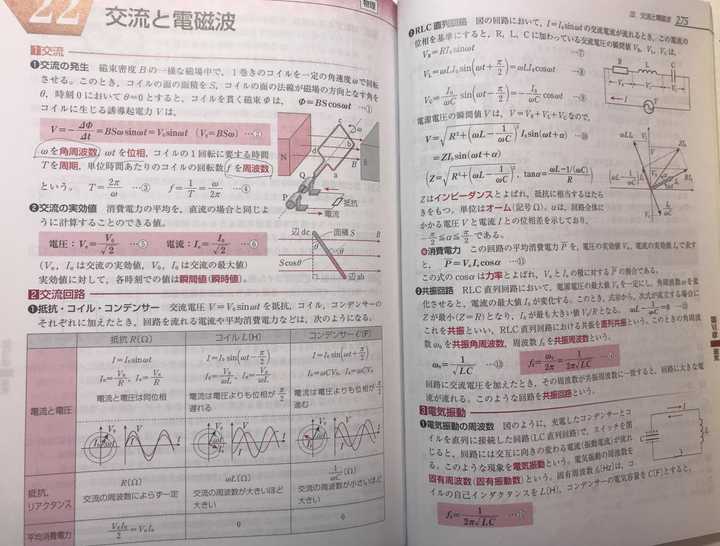 22 交流と電磁波
物理
1交流
❶交流の発生 磁束密度Bの一様な磁場中で，1巻きのコイルを一定の角速度ωで回転
させる。このとき，コイルの面の面積をS，コイルの面の法線が磁場の方向となす角を
θ，時刻0においてθ=0とすると，コイルを貫く磁束Φは，Φ=BScosωt …①
コイルに生じる誘導起電力Vは，
V=-ΔΦ/Δt=BSωsinωt=V₀sinωt (V₀=BSω) …②
ωを角周波数，ωtを位相，コイルの1回転に要する時間
Tを周期，単位時間あたりのコイルの回転数fを周波数
という。 T=2π/ω …③ f=1/T=ω/2π …④
❷交流の実効値 消費電力の平均を，直流の場合と同じよ
うに計算することのできる値。
電圧：Vₑ=V₀/√2 …⑤ 電流：Iₑ=I₀/√2 …⑥
(Vₑ，Iₑは交流の実効値，V₀，I₀は交流の最大値)
実効値に対して，各時刻での値は瞬間値(瞬時値)。
N
S
抵抗
電流
辺dc
面積S
B
Scosθ
辺ab
2交流回路
❶抵抗・コイル・コンデンサー 交流電圧V=V₀sinωtを抵抗，コイル，コンデンサーの
それぞれに加えたとき，回路を流れる電流や平均消費電力などは，次のようになる。
抵抗R(Ω) コイルL(H) コンデンサーC(F)
電流と電圧
I=I₀sinωt I=I₀sin(ωt-π/2) I=I₀sin(ωt+π/2)
I₀=V₀/R，Iₑ=Vₑ/R I₀=V₀/ωL，Iₑ=Vₑ/ωL I₀=ωCV₀，Iₑ=ωCVₑ
電流と電圧は同位相 電流は電圧よりも位相がπ/2遅れる 電流は電圧よりも位相がπ/2進む
抵抗，リアクタンス
R(Ω) ωL(Ω) 1/ωC(Ω)
交流の周波数によらず一定 交流の周波数が大きいほど大きい 交流の周波数が小さいほど大きい
平均消費電力 V₀I₀/2=VₑIₑ 0 0
22 交流と電磁波 275
❷RLC直列回路 図の回路において，I=I₀sinωtの交流電流が流れるとき，この電流の
位相を基準にすると，R，L，Cに加わっている交流電圧の瞬間値V_R，V_L，V_Cは，
V_R=RI₀sinωt …⑦
V_L=ωLI₀sin(ωt+π/2)=ωLI₀cosωt …⑧
V_C=I₀/ωC sin(ωt-π/2)=-I₀/ωC cosωt …⑨
電源電圧の瞬間値Vは，V=V_R+V_L+V_Cなので，
V=√(R²+(ωL-1/ωC)²) I₀sin(ωt+α) …⑩
=ZI₀sin(ωt+α)
(Z=√(R²+(ωL-1/ωC)²)，tanα=(ωL-1/(ωC))/R)
Zはインピーダンスとよばれ，抵抗に相当するはたら
きをもつ。単位はオーム(記号Ω)。αは，回路全体に
かかる電圧Vと電流Iとの位相差を示しており，
-π/2≦α≦π/2である。
◆消費電力 この回路の平均消費電力P̄を，電圧の実効値Vₑ，電流の実効値Iₑで表す
と，P̄=VₑIₑcosα …⑪
この式のcosαは力率とよばれ，VₑとIₑの積に対するP̄の割合である。
❸共振回路 RLC直列回路において，電源電圧の最大値V₀を一定にし，角周波数ωを変
化させると，電流の最大値I₀が変化する。このとき，式⑩から，次式が成立する場合に
Zが最小(Z=R)となり，I₀が最も大きい値V₀/Rとなる。 ωL-1/ωC=0 …⑫
これを共振といい，RLC直列回路における共振を直列共振という。このときの角周波
数ω₀を共振角周波数，周波数f₀を共振周波数という。
ω₀=1/√LC …⑬ f₀=ω₀/2π=1/2π√LC
回路に交流電圧を加えたとき，その周波数が共振周波数に一致すると，回路に大きな電
流が流れる。このような回路を共振回路という。
3電気振動
❶電気振動の周波数 図のように，充電したコンデンサーとコ
イルを直列に接続した回路(LC直列回路)で，スイッチを閉
じると，回路には交互に向きの変わる電流(振動電流)が流れ
る。このような現象を電気振動という。電気振動の周波数を
固有周波数(固有振動数)という。固有周波数f₀(Hz)は，コ
イルの自己インダクタンスをL(H)，コンデンサーの電気容量をC(F)とすると，
f₀=1/2π√LC